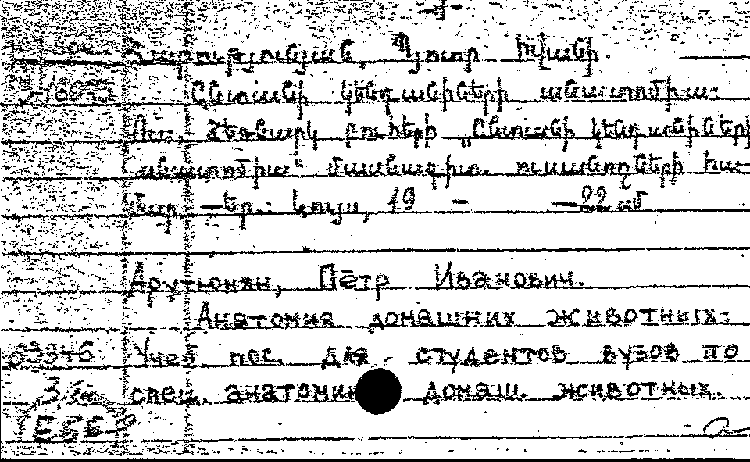 Հարությունյան, Պյոտր Իվանի.
Ընտանի կենդանիների անատոմիա:
Ուս. ձեռնարկ բուհերի „Ընտանի կենդանիների
անատոմիա" մասնագիտ. ուսանողների հա-
մար —Եր.: Լույս, 19 — —22 սմ
Арутюнян, Пётр Иванович.
Анатомия домашних животных:
Учеб. пос. для студентов вузов по
спец. анатомия домаш. животных.